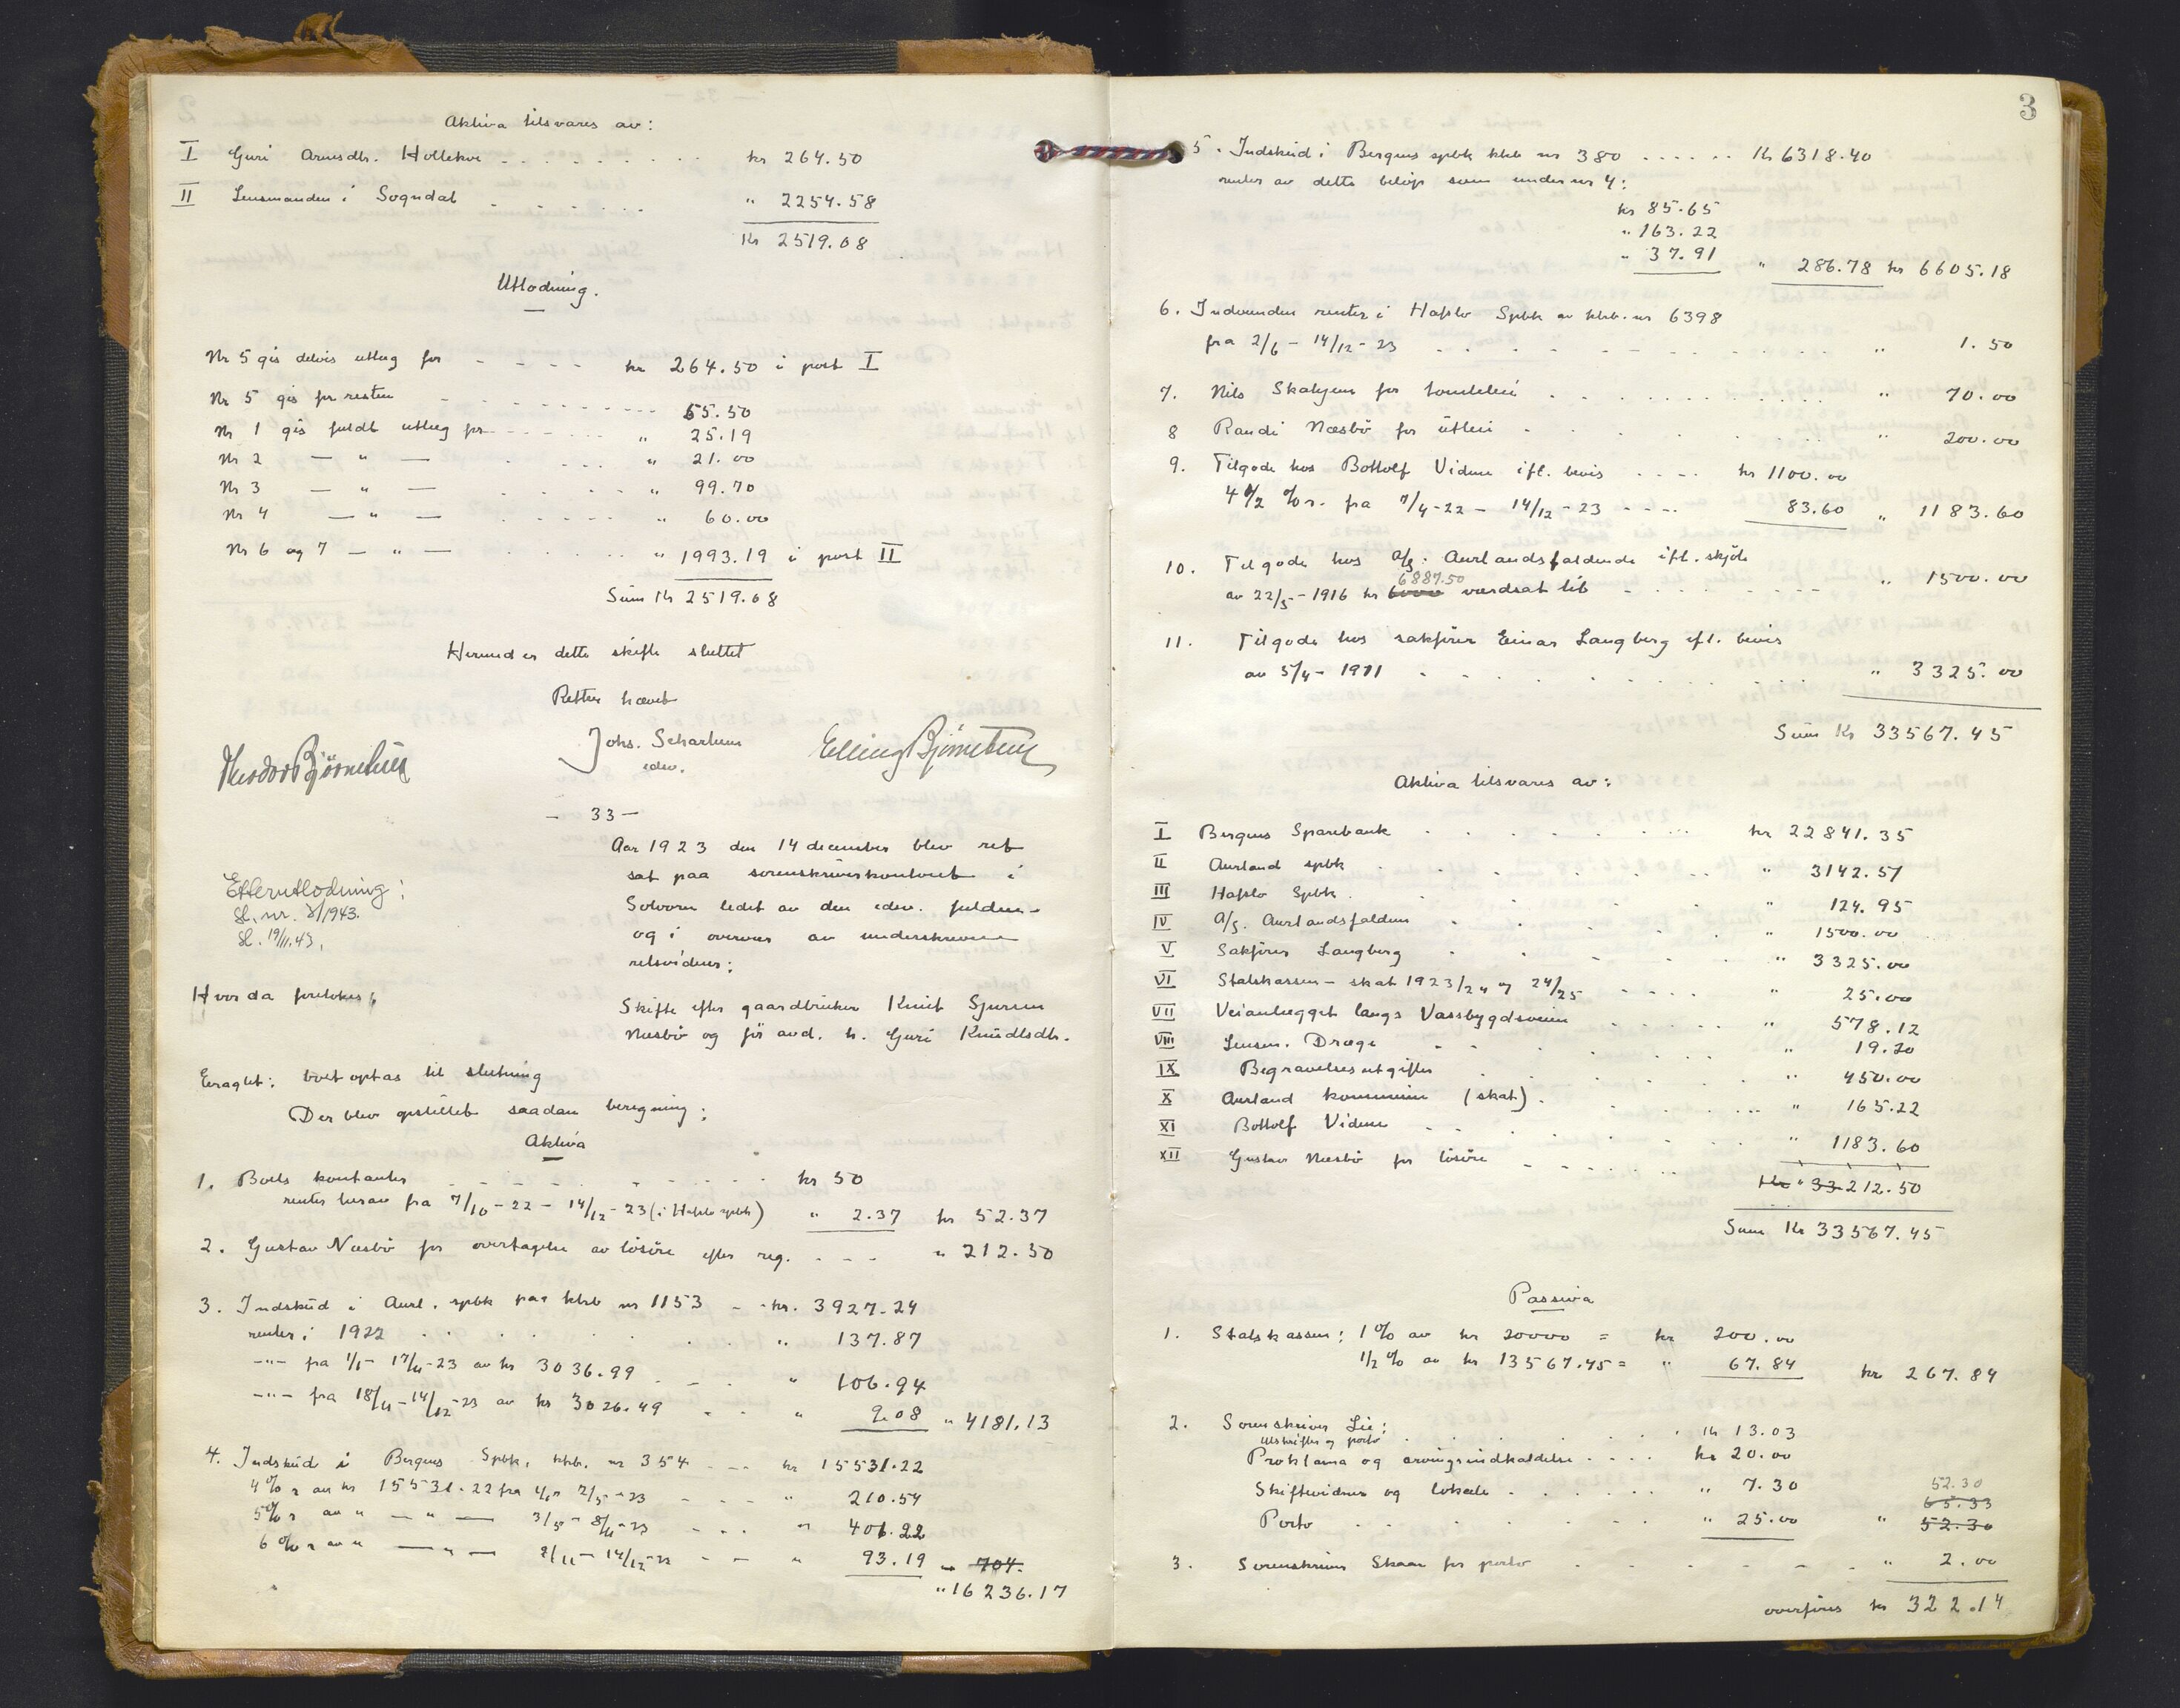 Aktiva tilsvares av:
I Guri Arnesdtr. Hollekve - - - - kr 264.50
II Lensmanden i Sogndal - - - - " 2254.58
Kr 2519.08
Utlodning.
Nr 5 gis delvis utlæg for - - - - kr 264.50 i post I
Nr 5 gis for resten - - - - 55.50
Nr 1 gis fuldt utlæg for - - - - " 25.19
Nr 2 — " — - - - - " 21.00
Nr 3 — " — - - - - " 99.70
Nr 4 — " — - - - - " 60.00
Nr 6 og 7 — " — - - - - " 1993.19 i post II
Sum Kr 2519.08
Hermed er dette skifte sluttet
Retten hævet
Johs. Scharlum
edsv.
Theodor Bjørnetun
Elling Bjørnetun
— 33 —
Aar 1923 den 14 december blev ret
sat paa sorenskriverkontoret i
Solvorn ledet av den edsv. fuldm-
og i overvær av underskrevne
retsvidner;
Efterutlodning:
Sl. nr. 3/1943.
Sl. 19/11.43.
Hvorda foretokes;
Skifte efter gaardbruker Knut Sjursen
Næsbö og før avd. h. Guri Knudtsdtr.
Eragtet: boet optas til slutning
Der blev opstillet saadan beregning;
Aktiva
1. Boets kontanter - - - - kr 50
renter herav fra 7/10-22 - 14/12-23 (i Hafslo spbk) " 2.37 kr 52.37
2. Gustav Næsbö for overtagelse av lösöre efter reg. - - - " 212.50
3. Indskud i Aurl. spbk paa kbb nr 1153 - - kr. 3927.24
renter i 1922 . . . . " 137.87
-"- fra 1/1 - 17/11-23 av kr 3036.99 . - - " 106.94
-"- fra 18/11-14/12-23 av kr 3026.49 - - " 9.08 " 4181.13
4. Indskud i Bergens Spbk. kbb. nr 354 - - - kr 15531.22
4% r av kr 15531.22 fra 1/1 2/5-23 - - - " 210.54
5% r av " — " — 3/5 - 8/11-23 - - - " 401.22
6% r av " — " — 9/11 - 14/12-23 - - " 93.19 " 704.
" 16236.17
3
5. Indskud i Bergens spbk kbb nr 380 - - - - Kr 6318.40
renter av dette belöp som under nr 4:
kr 85.65
" 163.22
" 37.91 " 286.78 kr 6605.18
6. Indvundne renter i Hafslo Spbk av kbb. nr 6398
fra 2/6 - 14/12-23 . . . . " 1.50
7. Nils Skahjem for tomteleie . . . . " 70.00
8 Randi Næsbö for utleie . . . . " 200.00
9. Tilgode hos Bottolf Vidme ifl. bevis - - - - kr 1100.00
4 1/2 % r. fra 7/4-22 - 14/12-23 - - - - 83.60 " 1183.60
10. Tilgode hos A/S. Aurlandsfaldende ifl. skjöte
6887.50
av 22/5-1916 kr 6000 værdsat til - - - - " 1500.00
11. Tilgode hos sakförer Einar Langberg ifl. bevis
av 5/4-1921 . . . . " 3325.00
Sum Kr 33567.45
Aktiva tilsvares av:
I Bergens Sparebank . . . . kr 22841.35
II Aurland spbk . . . . " 3142.51
III Hafslo Spbk. . . . . " 124.95
IV A/S. Aurlandsfaldene . . . . " 1500.00
V Sakförer Langberg . . . . " 3325.00
VI Statskassen - skat 1923/24 og 24/25 - - - - " 25.00
VII Veianlægget langs Vassbygdsveien . . . . " 578.12
VIII Lensm. Dræge . . . . " 19.20
IX Begravelsesutgifter . . . . " 450.00
X Aurland kommune (skat) . . . . " 165.22
XI Bottolf Vidme . . . . " 1183.60
XII Gustav Næsbö for lösöre - - - - Kr " 33212.50
Sum Kr 33567.45
Passiva
1. Statskassen: 1% av kr 20000 = kr 200.00
1/2% av kr 13567.45 = " 67.84 kr 267.84
2. Sorenskriver Lie:
Utskrifter og porto . . . . Kr 13.03
Proklama og arvingsindkaldelse . . . . kr 20.00
Skiftevidner og lokale . . . . " 7.30 52.30
65.33
Porto . . . . " 25.00 " 52.30
3. Sorenskriver Skaar for porto - - - - " 2.00
overföres kr 322.14